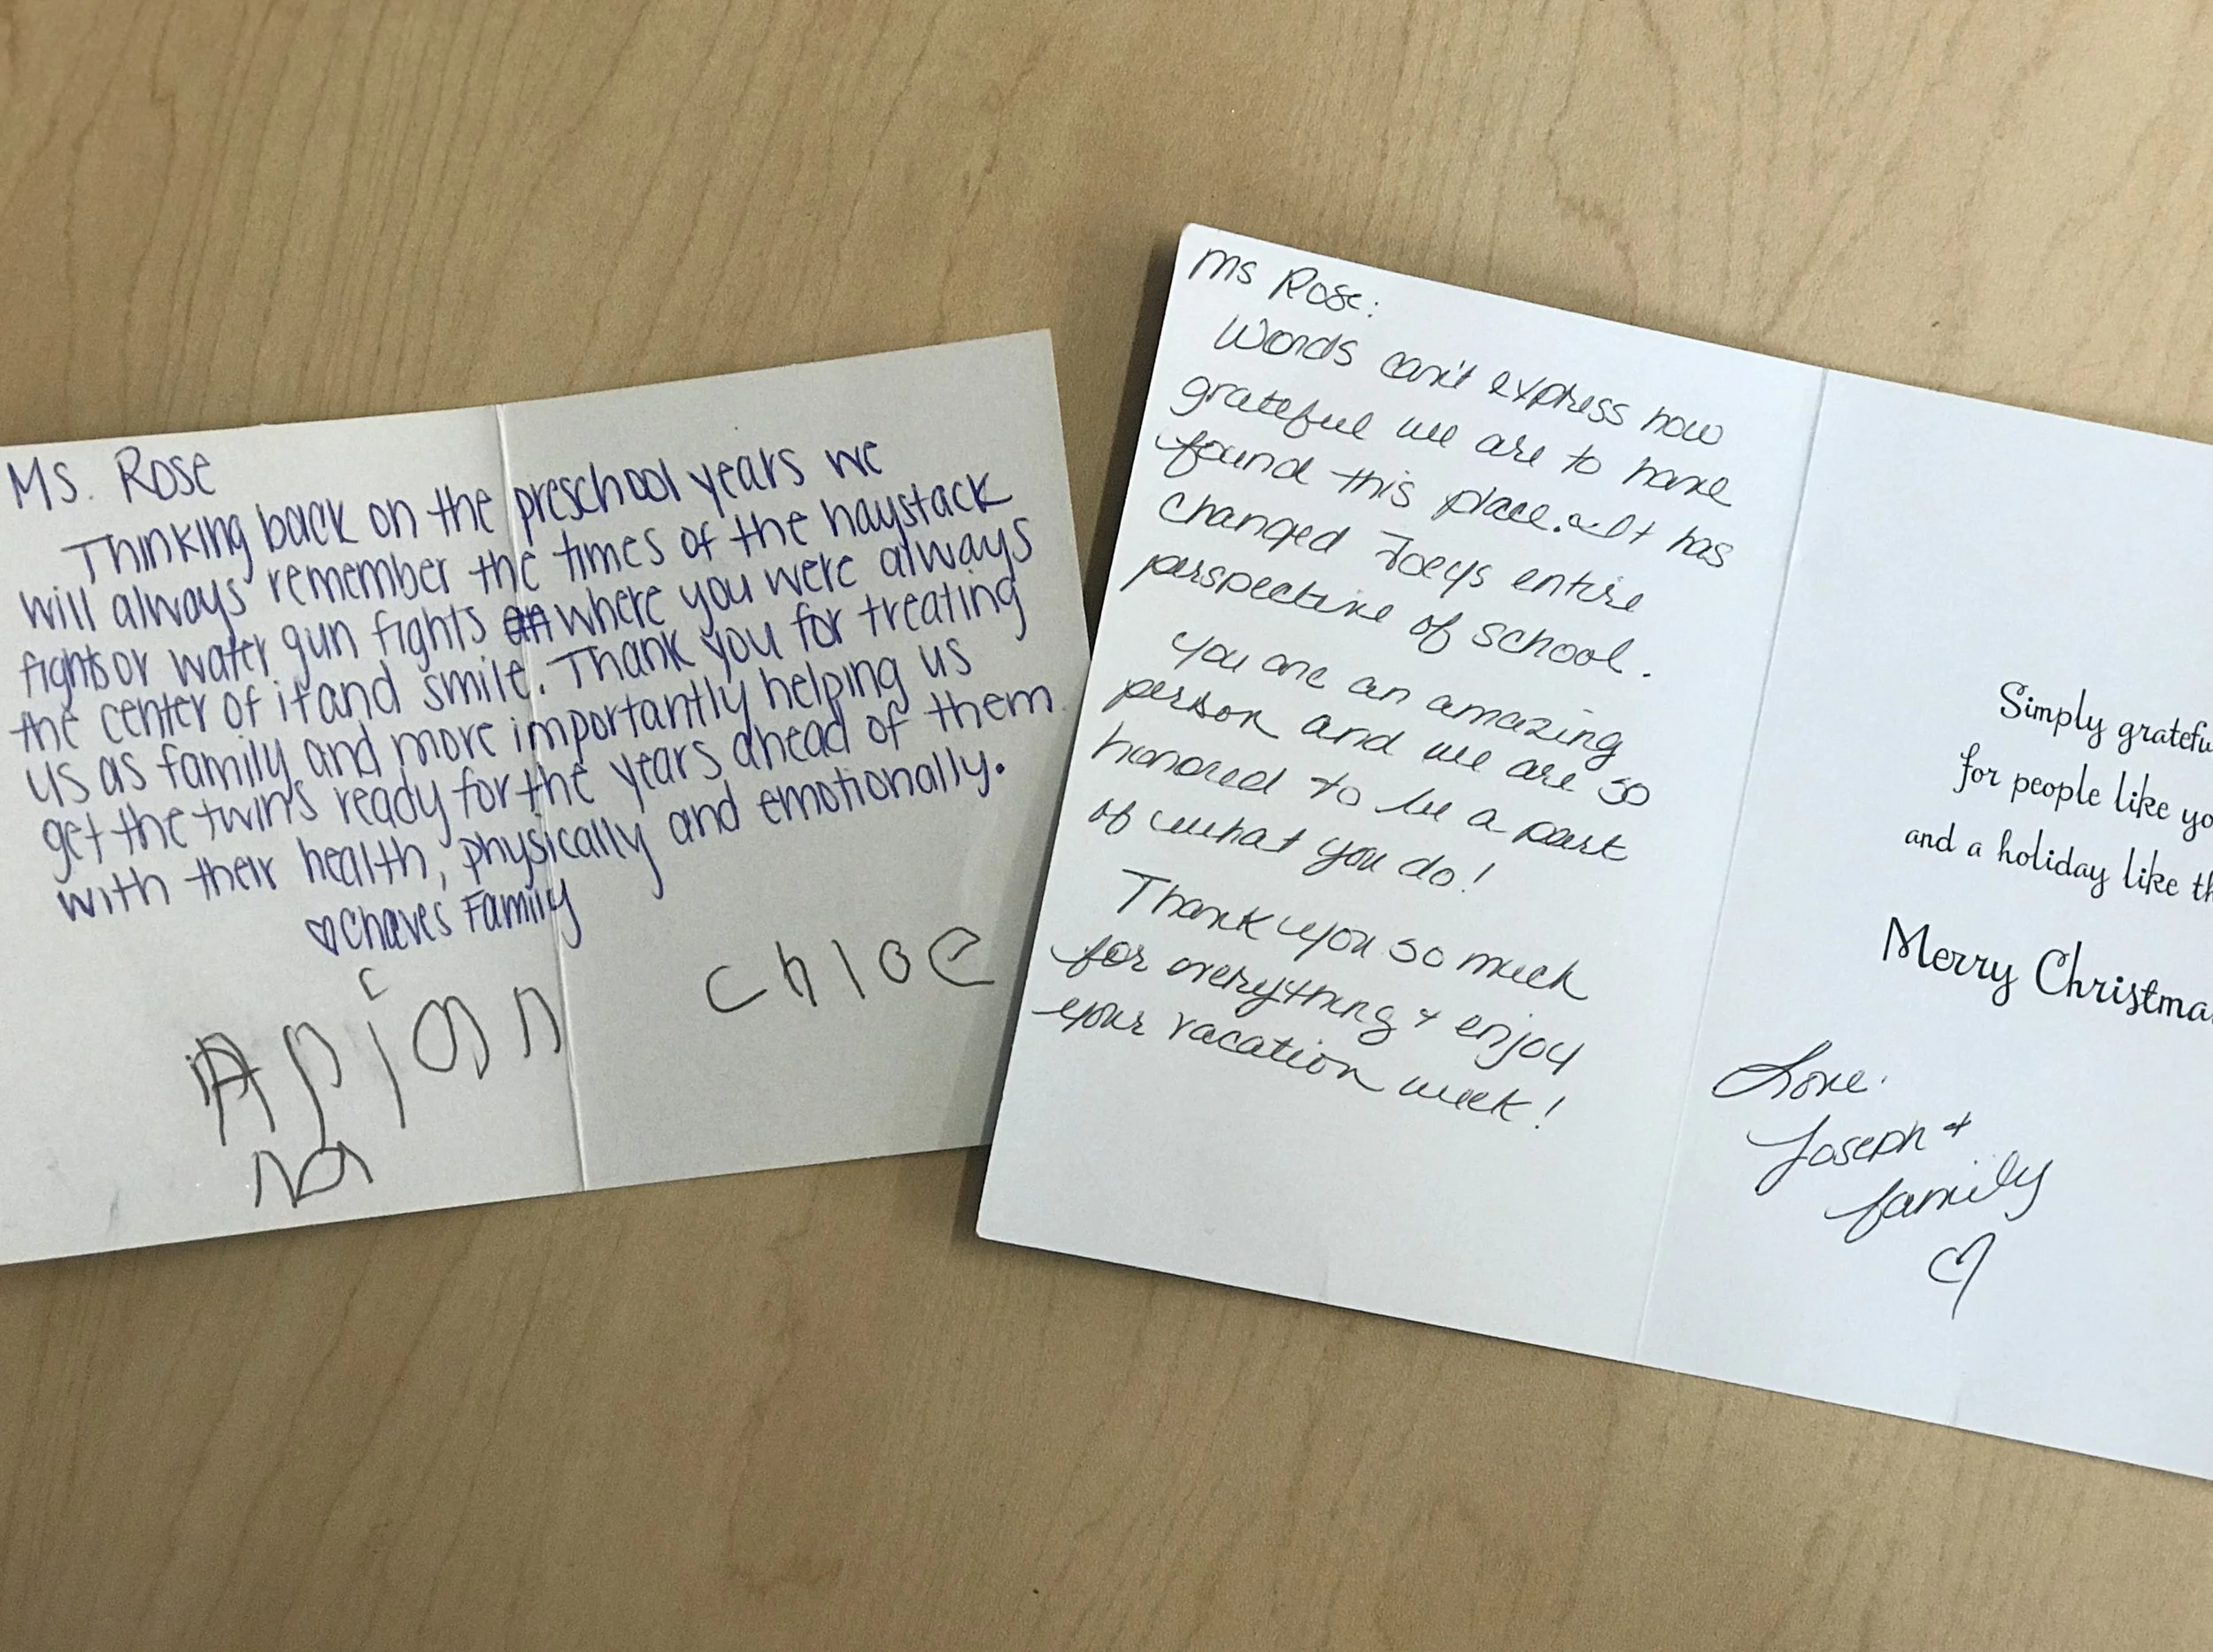 Ms. Rose
Thinking back on the preschool years we
will always remember the times of the haystack
fights or water gun fights where you were always
the center of it and smile. Thank you for treating
us as family and more importantly helping us
get the twins ready for the years ahead of them
with their health, physically and emotionally.
♡ Chaves Family
Chloe
Ms Rose:
Words can't express how
grateful we are to have
found this place. It has
changed Joeys entire
perspective of school.
You are an amazing
person and we are so
honored to be a part
of what you do!
Thank you so much
for everything + enjoy
your vacation week!
Simply gratefu
for people like yo
and a holiday like th
Merry Christma
Love.
Joseph +
family
♡